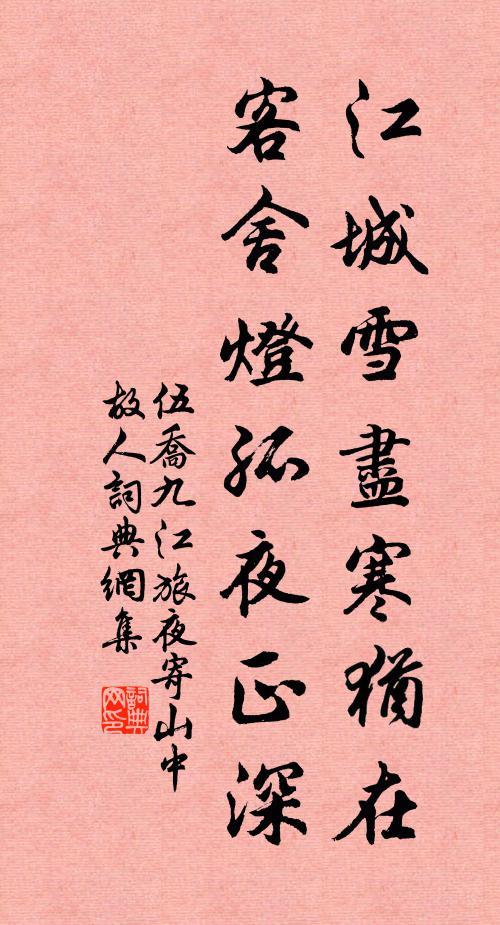 江城雪盡寒猶在
客舍燈孤夜正深
伍喬九江旅夜寄山中
故人詞典網集
詞典网印